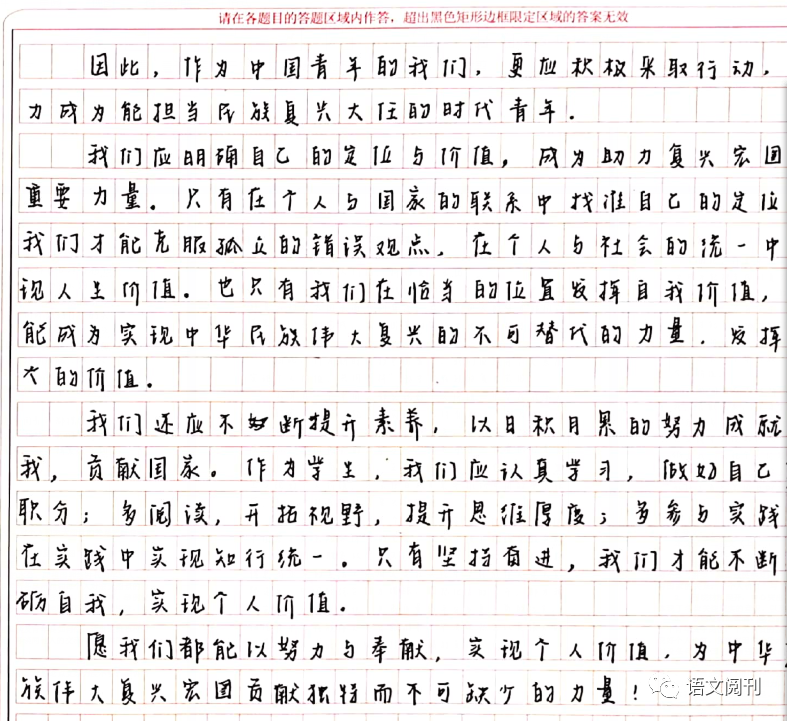 请在各题目的答题区域内作答，超出黑色矩形边框限定区域的答案无效
因此，作为中国青年的我们，更应积极采取行动，
力成为能担当民族复兴大任的时代青年.
我们应明确自己的定位与价值，成为助力复兴宏图
重要力量。只有在个人与国家的联系中找准自己的定位
我们才能克服孤立的错误观点，在个人与社会的统一中
现人生价值。也只有我们在恰当的位置发挥自我价值，
能成为实现中华民族伟大复兴的不可替代的力量，发挥
大的价值。
我们还应不断提升素养，以日积月累的努力成就
我，贡献国家。作为学生，我们应认真学习，做好自己
职分；多阅读，开拓视野，提升思维厚度；多参与实践
在实践中实现知行统一。只有坚持奋进，我们才能不断
砺自我，实现个人价值。
愿我们都能以努力与奉献，实现个人价值，为中华
族伟大复兴宏图贡献独特而不可缺少的力量！
语文阅刊